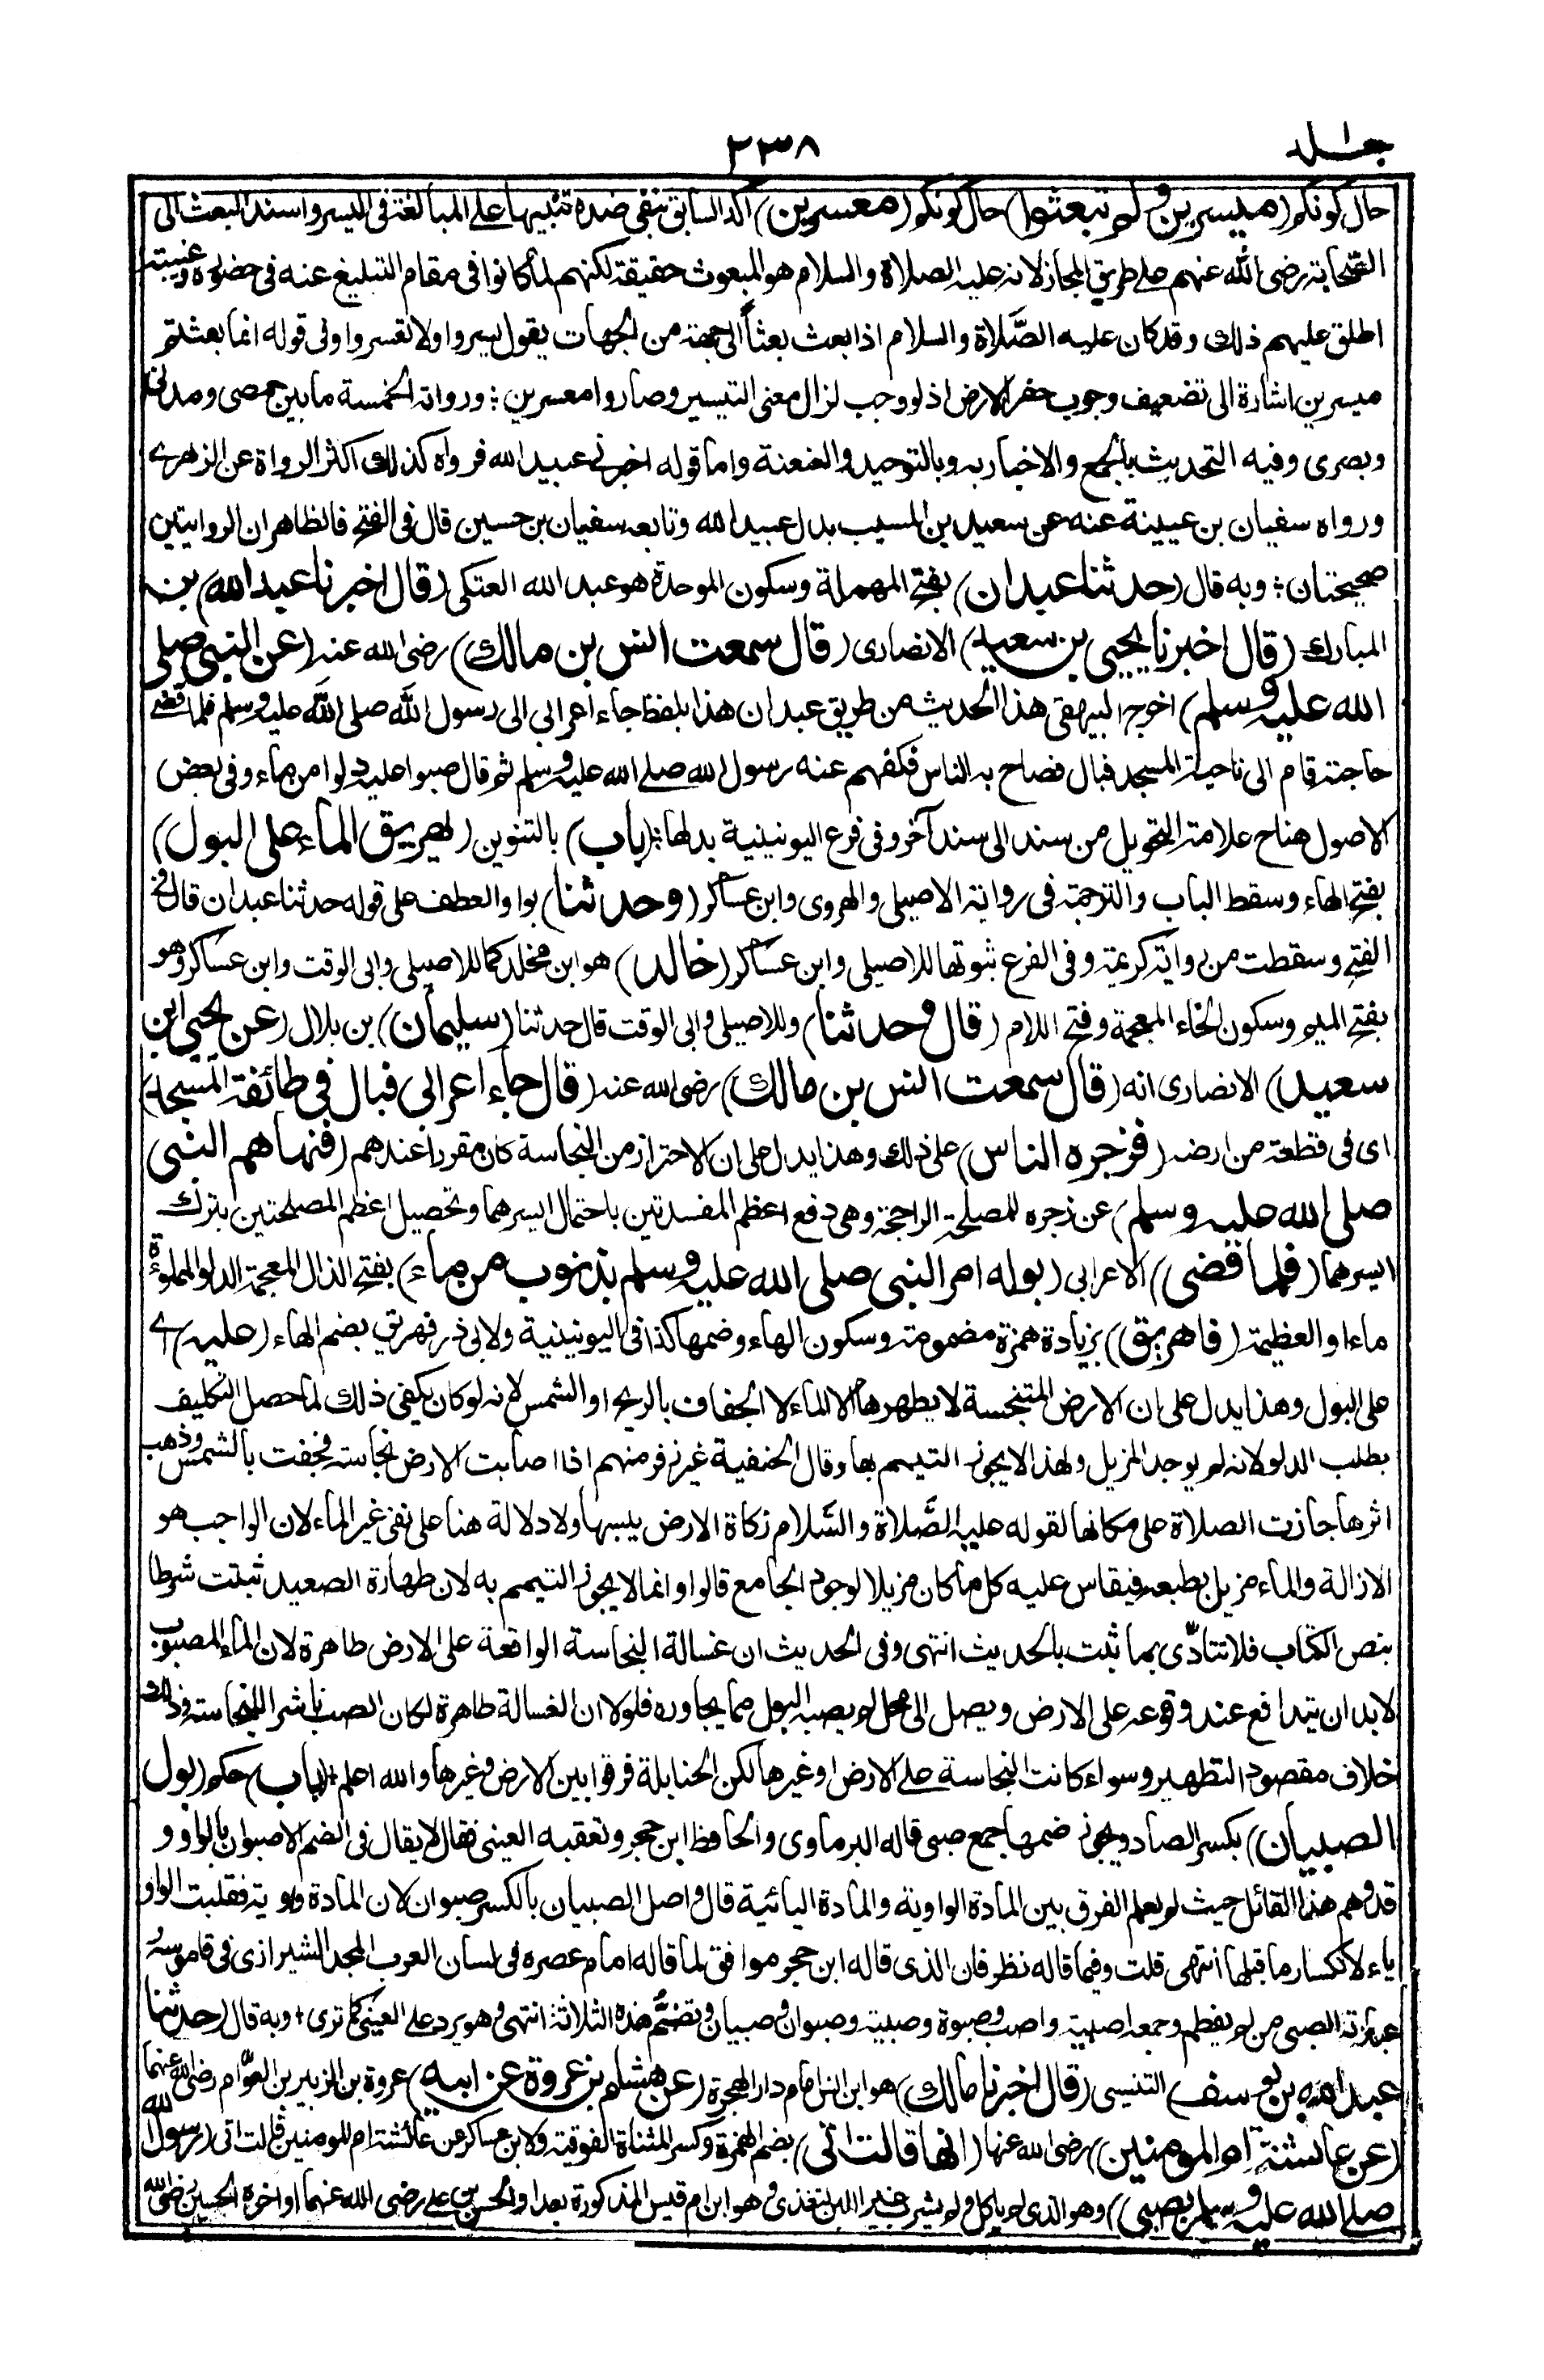 جلد ١
٢٣٨
حال كونكم (ميسرين ولم تبعثوا) حال كونكم (معسرين) اكد السابق بنفى ضده تنبيها على المبالغة فى اليسر واسند البعث الى
الصحابة رضى الله عنهم على طريق المجاز لانه عليه الصلاة والسلام هو المبعوث حقيقة لكنهم لما كانوا فى مقام التبليغ عنه فى حضوره وغيبته
اطلق عليهم ذلك وقد كان عليه الصلاة والسلام اذا بعث بعثاً الى جهة من الجهات يقول يسروا ولا تعسروا وفى قوله انما بعثتم
ميسرين اشارة الى تضعيف وجوب حفر الارض اذ لو وجب لزال معنى التيسير وصاروا معسرين ؛ ورواته الخمسة ما بين حمصى ومدنى
وبصرى وفيه التحديث بالجمع والاخبار به وبالتوحيد والعنعنة واما قوله اخبرنى عبيد الله فرواه كذلك اكثر الرواة عن الزهرى
ورواه سفيان بن عيينة عنه عن سعيد بن المسيب بدل عبيد الله وتابعه سفيان بن حسين قال فى الفتح فالظاهر ان الروايتين
صحيحتان ؛ وبه قال (حدثنا عبدان) بفتح المهملة وسكون الموحدة هو عبد الله العتكى (قال اخبرنا عبد الله) بن
المبارك (قال اخبرنا يحيى بن سعيد) الانصارى (قال سمعت انس بن مالك) رضى الله عنه (عن النبى صلى
الله عليه وسلم) اخرج البيهقى هذا الحديث من طريق عبدان هذا بلفظ جاء اعرابى الى رسول الله صلى الله عليه وسلم فلما قضى
حاجته قام الى ناحية المسجد فبال فصاح به الناس فكفهم عنه رسول الله صلى الله عليه وسلم ثم قال صبوا عليه دلوا من ماء وفى بعض
الاصول هنا ح علامة التحويل من سند الى سند آخر وفى فرع اليونينية بدلها ؛ (باب) بالتنوين (يهريق الماء على البول)
بفتح الهاء وسقط الباب والترجمة فى رواية الاصيلى والهروى وابن عساكر (وحدثنا) بواو العطف على قوله حدثنا عبدان قال فى
الفتح وسقطت من رواية كريمة وفى الفرع ثبوتها للاصيلى وابن عساكر (خالد) هو ابن مخلد كما للاصيلى وابى الوقت وابن عساكر وهو
بفتح الميم وسكون الخاء المعجمة وفتح اللام (قال وحدثنا) وللاصيلى وابى الوقت قال حدثنا (سليمان) بن بلال (عن يحيى ابن
سعيد) الانصارى انه (قال سمعت انس بن مالك) رضى الله عنه (قال جاء اعرابى فبال فى طائفة المسجد)
اى فى قطعة من ارضه (فزجره الناس) على ذلك وهذا يدل على ان الاحتراز من النجاسة كان مقرراً عندهم (فنهاهم النبى
صلى الله عليه وسلم) عن زجره للمصلحة الراجحة وهى دفع اعظم المفسدتين باحتمال ايسرهما وتحصيل اعظم المصلحتين بترك
ايسرهما (فلما قضى) الاعرابى (بوله امر النبى صلى الله عليه وسلم بذنوب من ماء) بفتح الذال المعجمة الدلو المملوءة
ماء او العظيمة (فاهريق) بزيادة همزة مضمومة وسكون الهاء وضمها كذا فى اليونينية ولابى ذر فهريق بضم الهاء (عليه) اى
على البول وهذا يدل على ان الارض المتنجسة لا يطهرها الا الماء لا الجفاف بالريح او الشمس لانه لو كان يكفى ذلك لما حصل التكليف
بطلب الدلو ولانه لم يوجد المزيل ولهذا لا يجوز التيمم بها وقال الحنفية غير زفر منهم اذا اصابت الارض نجاسة فجفت بالشمس وذهب
اثرها جازت الصلاة على مكانها لقوله عليه الصلاة والسلام زكاة الارض يبسها ولا دلالة هنا على نفى غير الماء لان الواجب هو
الازالة والماء مزيل بطبعه فيقاس عليه كل ما كان مزيلا لوجود الجامع قالوا وانما لا يجوز التيمم به لان طهارة الصعيد ثبتت شرطا
بنص الكتاب فلا تتأدّى بما ثبت بالحديث انتهى وفى الحديث ان غسالة النجاسة الواقعة على الارض طاهرة لان الماء المصبوب
لا بد ان يتدافع عند وقوعه على الارض ويصل الى محل لم يصبه البول مما يجاوره فلولا ان الغسالة طاهرة لكان الصب ناشرا للنجاسة وذلك
خلاف مقصود التطهير وسواء كانت النجاسة على الارض او غيرها لكن الحنابلة فرقوا بين الارض وغيرها والله اعلم + (باب) حكم (بول
الصبيان) بكسر الصاد ويجوز ضمها جمع صبى قاله البرماوى والحافظ ابن حجر وتعقبه العينى فقال لا يقال فى الضم الا صبوان بالواو و
قد وهم هذا القائل حيث لم يعلم الفرق بين المادة الواوية والمادة اليائية قال واصل الصبيان بالكسر صبوان لان المادة واوية فقلبت الواو
ياء لانكسار ما قبلها انتهى قلت وفيما قاله نظر فان الذى قاله ابن حجر موافق لما قاله امام عصره فى لسان العرب المجد الشيرازى فى قاموسه
عبارته الصبى من لم يفطم وجمعه اصبية واصب وصبوة وصبية وصبوان وصبيان وتضم هذه الثلاثة انتهى وهو يرد على العينى كما ترى + وبه قال (حدثنا
عبد الله بن يوسف) التنيسى (قال اخبرنا مالك) هو ابن انس امام دار الهجرة (عن هشام بن عروة عن ابيه) عروة بن الزبير بن العوّام رضى الله عنهما
(عن عائشة ام المؤمنين) رضى الله عنها (انها قالت اتى) بضم الهمزة وكسر المثناة الفوقية ولابن عساكر عن عائشة ام المومنين قالت اتى (رسول الله
صلى الله عليه وسلم بصبى) وهو الذى لم ياكل ولم يشرب غير اللبن لتغذى وهو ابن ام قيس المذكورة بعد او الحسن بن على رضى الله عنهما او اخوه الحسين رضى الله